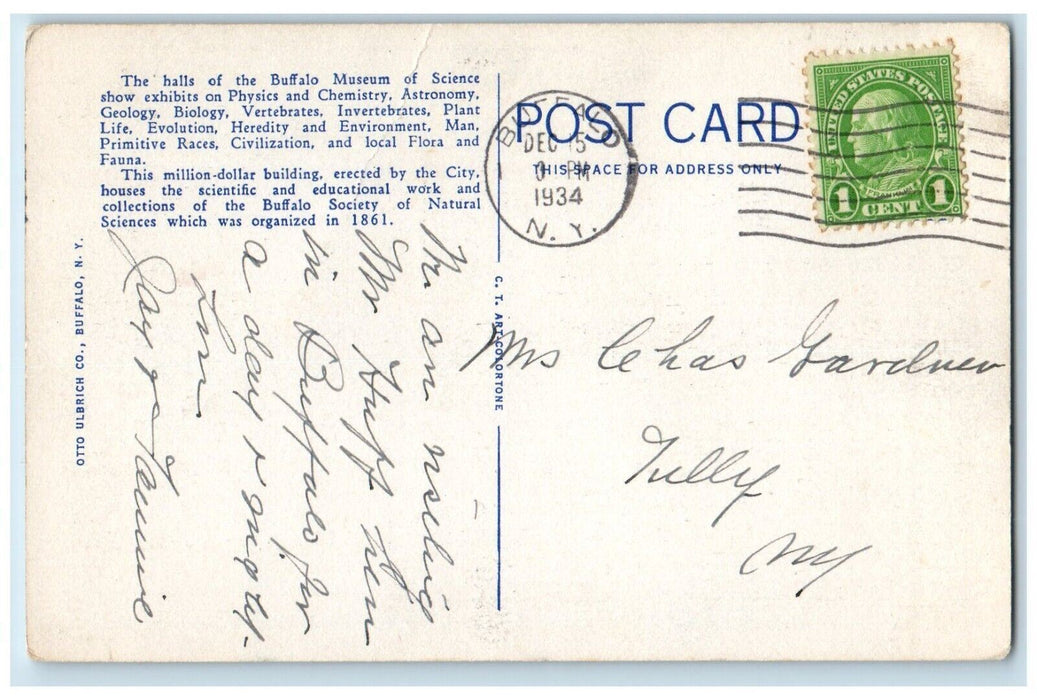 The halls of the Buffalo Museum of Science
show exhibits on Physics and Chemistry, Astronomy,
Geology, Biology, Vertebrates, Invertebrates, Plant
Life, Evolution, Heredity and Environment, Man,
Primitive Races, Civilization, and local Flora and
Fauna.
This million-dollar building, erected by the City,
houses the scientific and educational work and
collections of the Buffalo Society of Natural
Sciences which was organized in 1861.
OTTO ULBRICH CO., BUFFALO, N. Y.
C. T. ART-COLORTONE
POST CARD
THIS SPACE FOR ADDRESS ONLY
BUFFALO
DEC 15
PM
1934
N. Y.
UNITED STATES POSTAGE
FRANKLIN
1 CENT 1
Mrs Chas Gardner
Tully
NY
We are
Mr Huff here
in Buffalo for
a day & night.
Love
Jay &